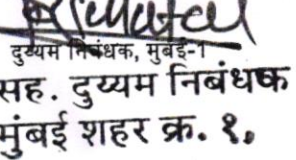 दुय्यम निबंधक, मुंबई-1
सह. दुय्यम निबंधक
मुंबई शहर क्र. १.